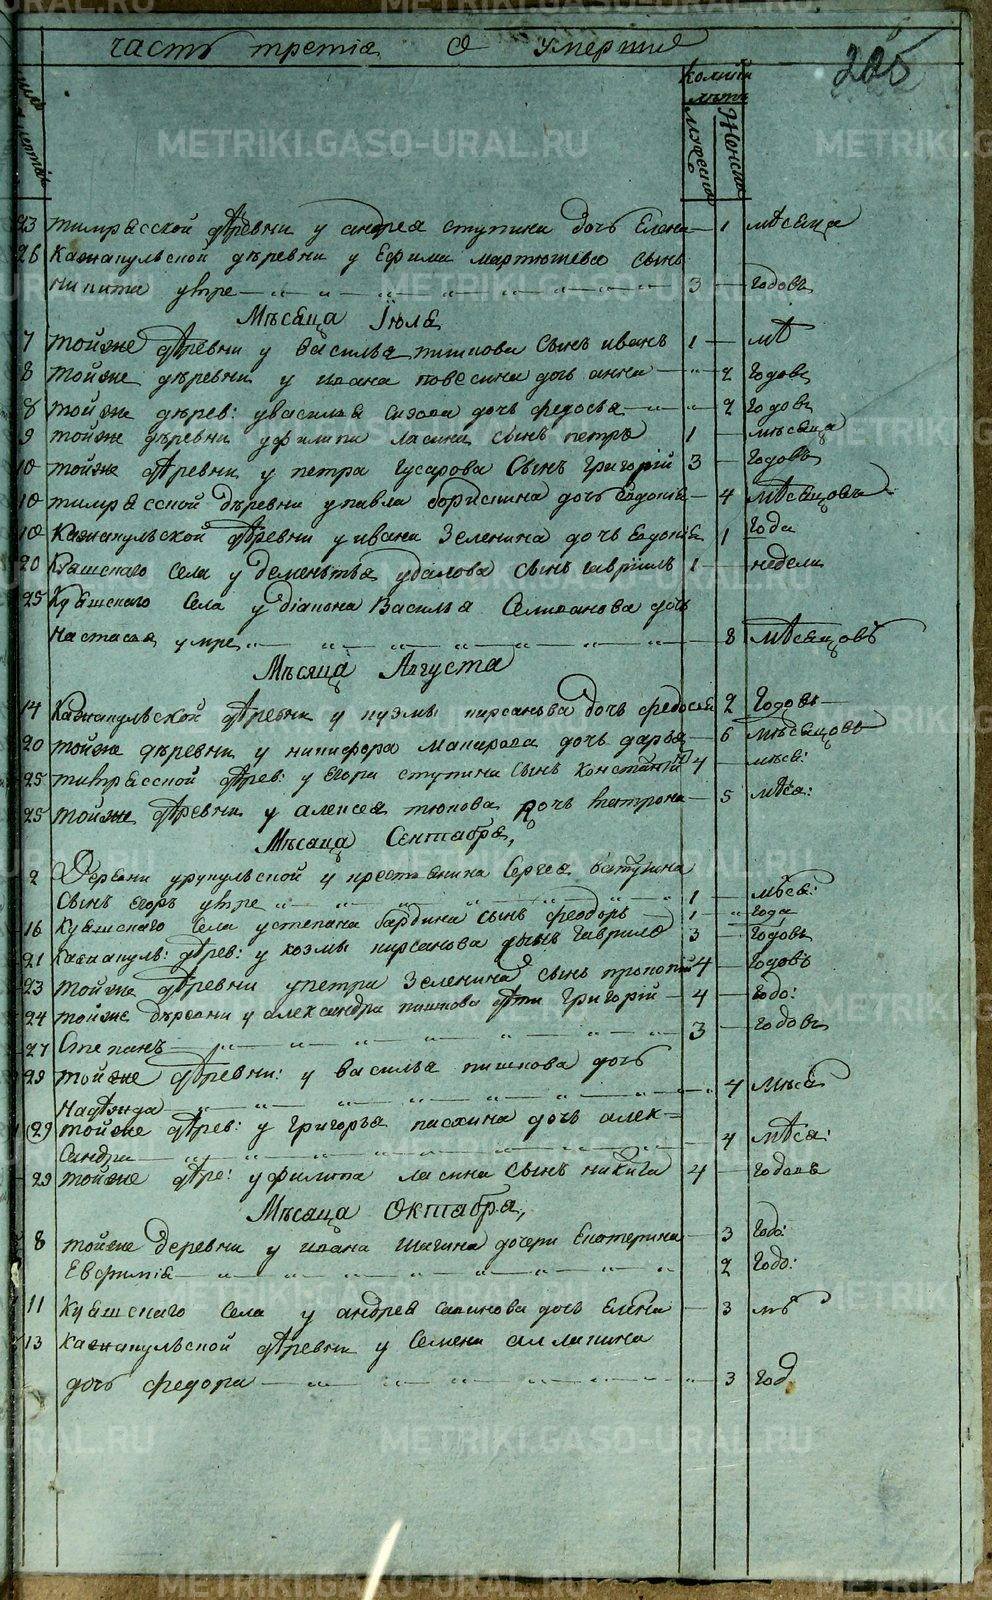 часть третія О умершие
205
Колики
лѣтъ
Мужеска
Женска
23 деревни у андрея ступина дочь Елена — 1 мѣсяца
26 деревни у Ефима мартюшева сынъ
Никита умре 3 — годовъ
Мѣсяца Іюля
7 тойже деревни у Василья пишкова сынъ иванъ 1 — мѣ
8 тойже деревни у ивана дочь анна — 2 годовъ
8 тойже дерев: у василья сизова дочь федосья — 2 годовъ
9 тойже деревни у филипа ласина сынъ петръ 1 — мѣсяца
10 тойже деревни у петра гусарова сынъ григорій 3 — годовъ
10 деревни у павла дочь евдокія — 4 мѣсяцовъ
10 деревни у ивана Зеленина дочь евдокія 1 года
20 Куяшскаго села у Дементья удалова сынъ гавріилъ 1 — недели
25 Куяшскаго села у діакона Василья Селиванова дочь
Настасья умре — 8 мѣсяцовъ
Мѣсяца Августа
14 деревни у кузмы кирсанова дочь федосья 2 годовъ
20 тойже деревни у никифора макарова дочь дарья — 6 мѣсяцовъ
25 дерев: у Егора ступина сынъ константинъ 4 — мѣсе:
25 тойже деревни у алексея тюкова дочь матрона — 5 мѣся:
Мѣсяца Сентября,
2 Деревни у крестьянина Сергея
сынъ Егоръ умре 1 — мѣся:
16 Куяшскаго села у степана бардина сынъ феодоръ — 1 — года
21 дерев: у козмы кирсанова сынъ гаврило 3 — годовъ
23 тойже деревни у петра Зеленина сынъ прокопій 4 — годовъ
24 тойже деревни у александра пишкова дети григорій — 4 — годо:
27 Степанъ 3 — годовъ
29 тойже деревни: у василья пишкова дочь
Надежда — 4 мѣся
29 тойже дерев: у григорья дочь алек=
сандра — 4 мѣся:
29 тойже дере: у филипа ласина сынъ никита 4 — годовъ
Мѣсяца Октября,
8 тойже деревни у ивана шагина дочери Екатерина — 3 годо:
Евфимія — 2 годо:
11 Куяшскаго села у андрея дочь Елена — 3 мѣ
13 деревни у Семена
дочь федора — 3 год
METRIKI.GASO-URAL.RU